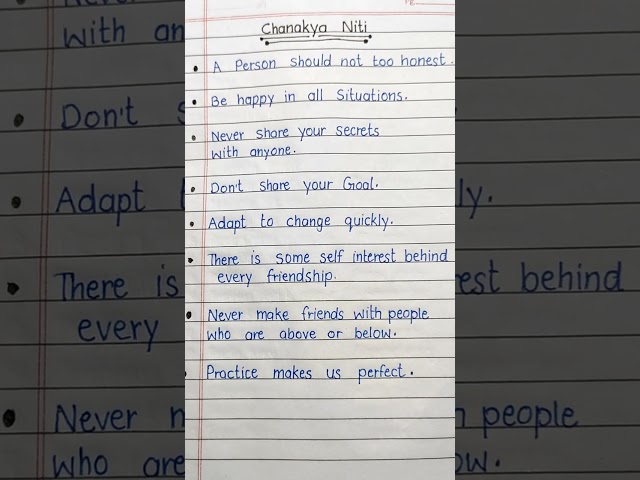 Chanakya Niti
• A Person should not too honest.
• Be happy in all Situations.
• Never share your secrets
with anyone.
• Don't share your Goal.
• Adapt to change quickly.
• There is some self interest behind
every friendship.
• Never make friends with people
who are above or below.
• Practice makes us perfect.